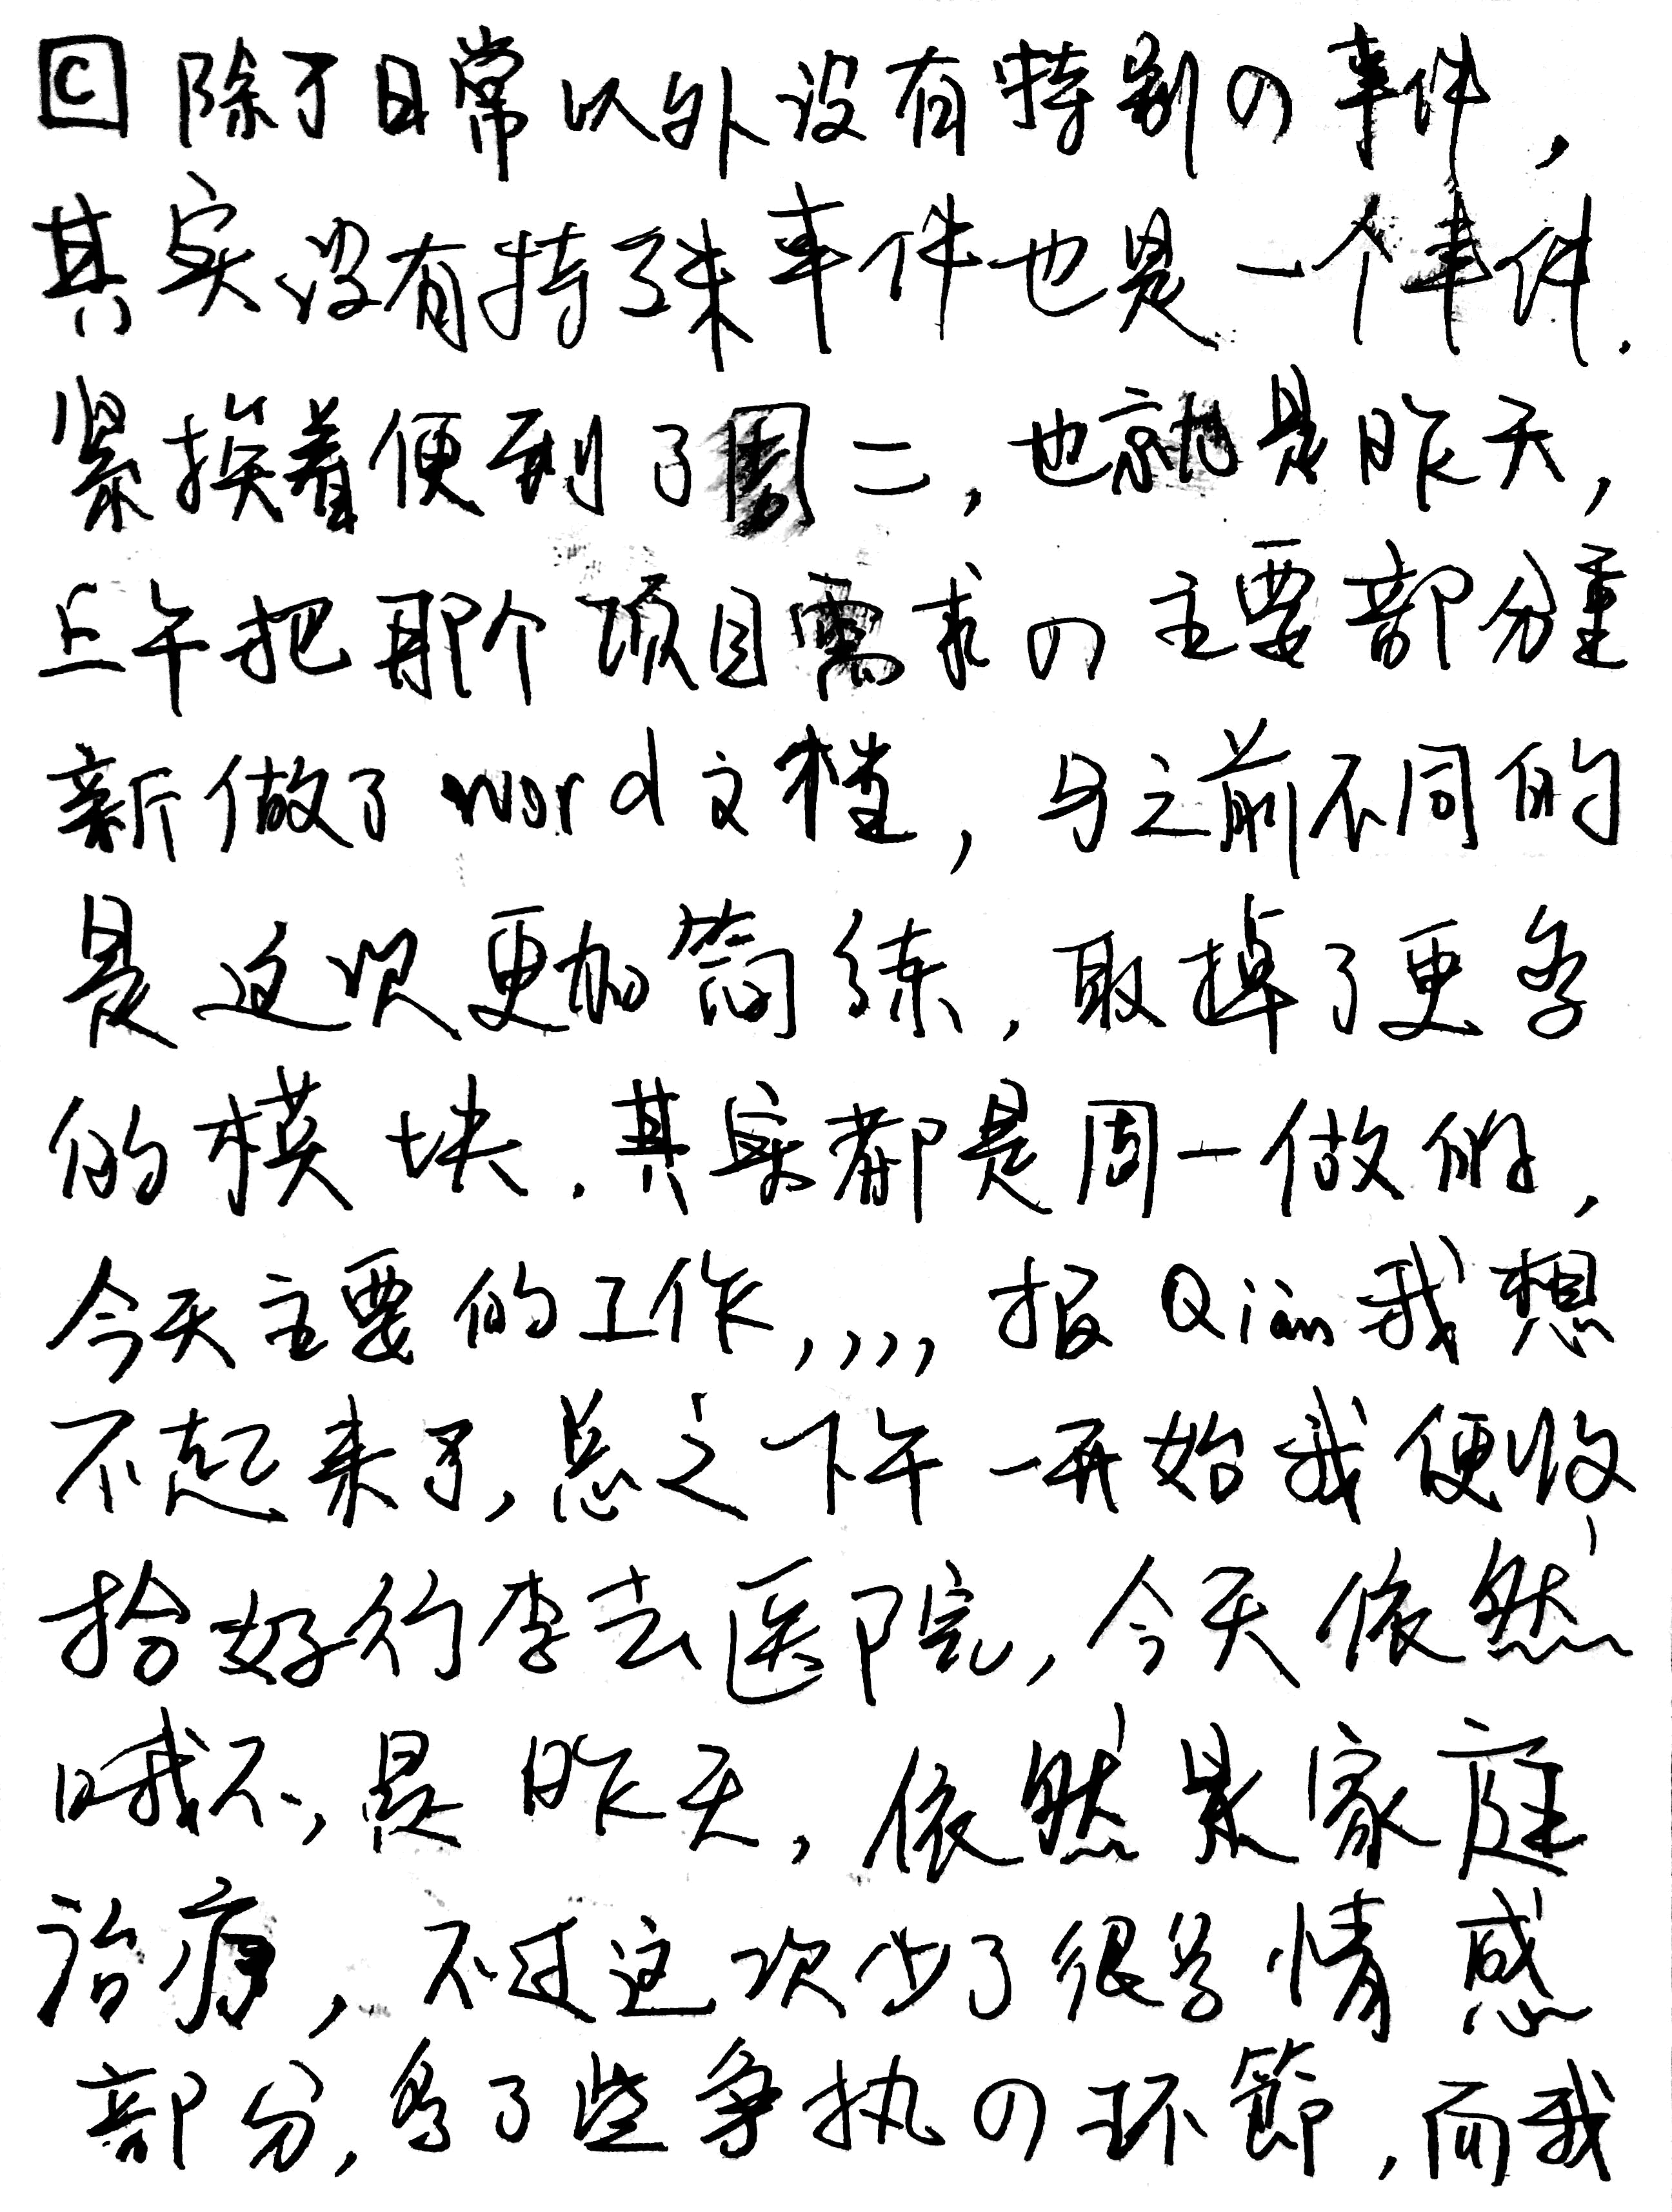 C 除了日常以外没有特别の事件，
其实没有特殊事件也是一个事件.
紧挨着便到了周二，也就是昨天，
上午把那个项目需求の主要部分重
新做了word文档，与之前不同的
是这次更加简练，取掉了更多
的模块.其实都是周一做的，
今天主要的工作,,,,,报Qian我想
不起来了，总之下午一开始我便收
拾好行李去医院，今天依然
哦不，是昨天，依然是家庭
治疗，不过这次少了很多情感
部分，多了些争执の环節，而我